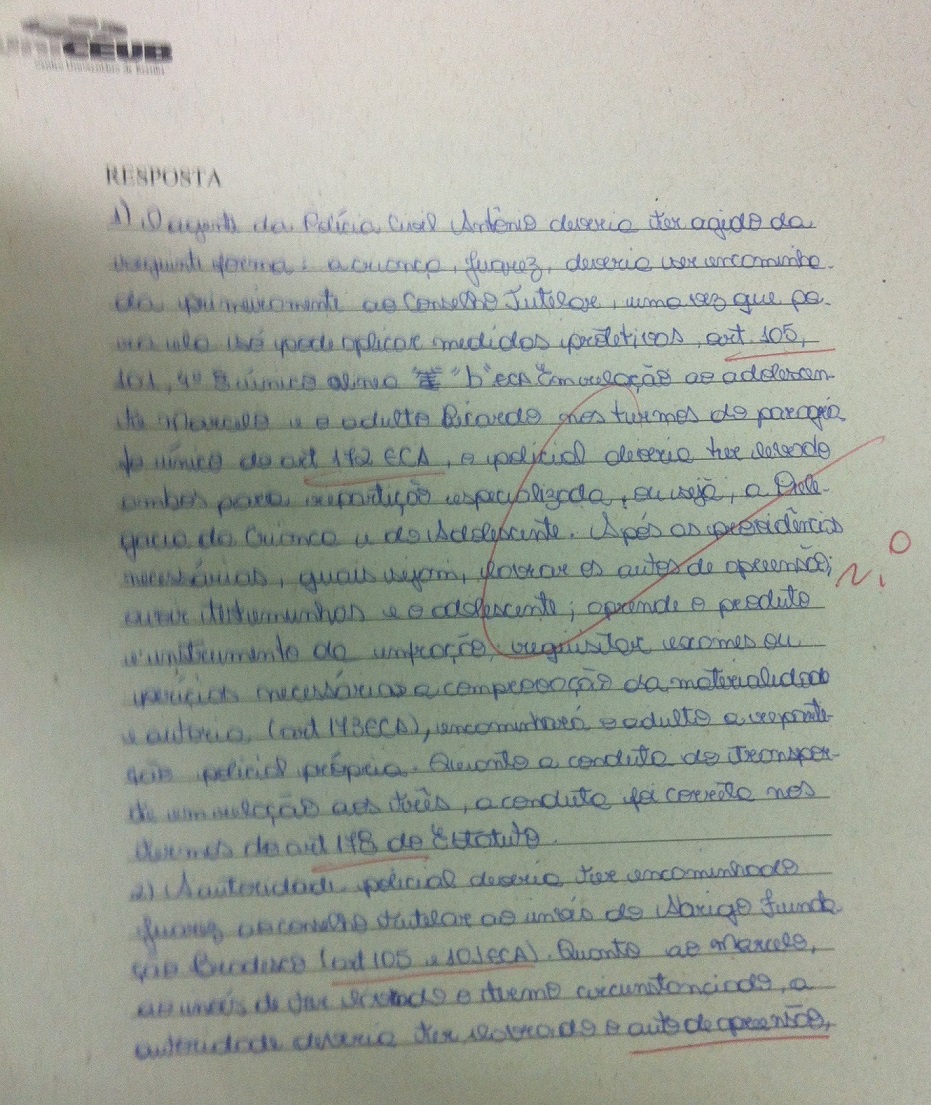 UNICEUB
RESPOSTA
1) O agente da Polícia Civil Antônio deveria ter agido da
seguinte forma: a criança, Juarez, deveria ser encaminha-
da primeiramente ao Conselho Tutelar, uma vez que pa-
ra ele só pode aplicar medidas protetivas, art. 105,
101, § único alínea "b" ECA Em relação ao adolescen-
te Marcelo e o adulto Ricardo nos termos do parágra-
fo único do art 172 ECA, o policial deveria ter levado
ambos para repartição especializada, ou seja, a Dele-
gacia da Criança e do Adolescente. Após as providências
necessárias, quais sejam, lavrar os autos de apreensão;
ouvir testemunhas e o adolescente; aprende o produto
e instrumento da infração, requisitar exames ou
perícias necessárias a comprovação da materialidade
e autoria, (art 173 ECA), encaminhará o adulto a reparti-
ção policial própria. Quanto a conduta do transpor-
te em relação aos três, a conduta foi correta nos
termos do art 178 do Estatuto.
2) A autoridade policial deveria ter encaminhado
Juarez ao conselho tutelar ao invés do Abrigo Funda-
ção (art 105 e 101 ECA). Quanto ao Marcelo,
ao invés de ter lavrado o termo circunstanciado, a
autoridade deveria ter lavrado o auto de apreensão,